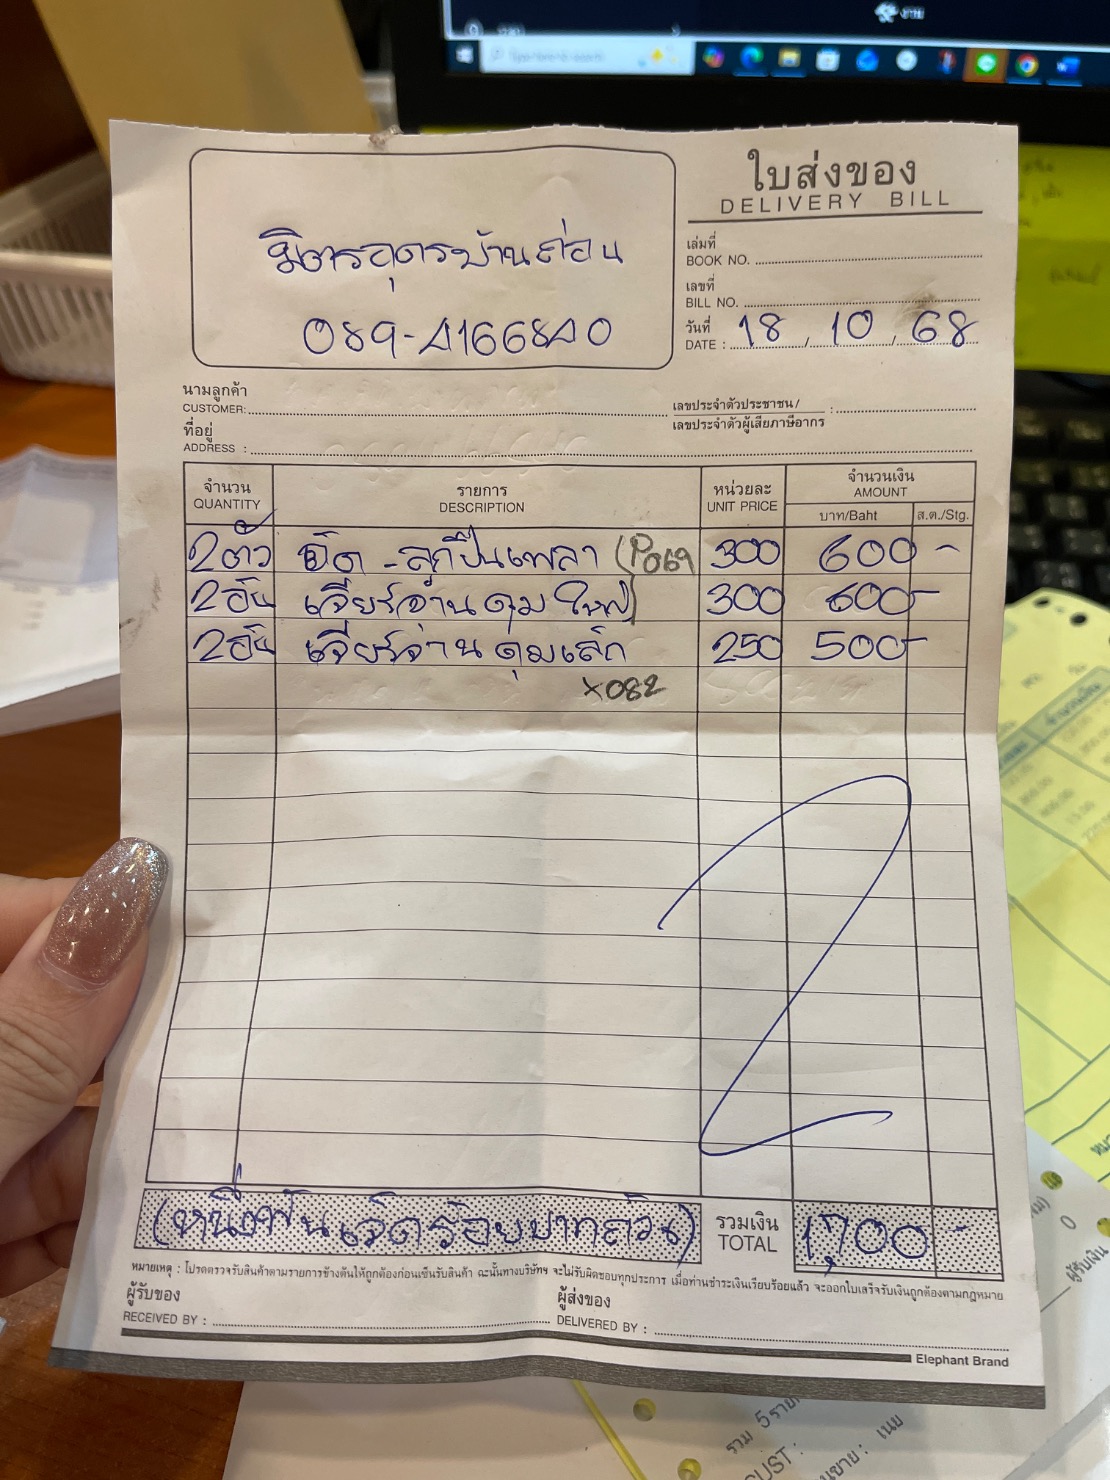 Type here to search
ใบส่งของ
DELIVERY BILL
มิตรอุดรบ้านถ่อน
089-4166840
เล่มที่
BOOK NO.
เลขที่
BILL NO.
วันที่
DATE : 18 / 10 / 68
นามลูกค้า
CUSTOMER:
เลขประจำตัวประชาชน /
เลขประจำตัวผู้เสียภาษีอากร :
ที่อยู่
ADDRESS :
จำนวน รายการ หน่วยละ จำนวนเงิน
QUANTITY DESCRIPTION UNIT PRICE AMOUNT
บาท/Baht ส.ต./Stg.
2ตัว อัด - ลูกปืนเพลา (P069 300 600 -
2อัน เจียร์จาน ดุมใหญ่ 300 600-
2อัน เจียร์จาน ดุมเล็ก 250 500-
X082
(หนึ่งพันเจ็ดร้อยบาทถ้วน) รวมเงิน 1,700 -
TOTAL
หมายเหตุ : โปรดตรวจรับสินค้าตามรายการข้างต้นให้ถูกต้องก่อนเซ็นรับสินค้า ฉะนั้นทางบริษัทฯ จะไม่รับผิดชอบทุกประการ เมื่อท่านชำระเงินเรียบร้อยแล้ว จะออกใบเสร็จรับเงินถูกต้องตามกฎหมาย
ผู้รับของ
RECEIVED BY :
ผู้ส่งของ
DELIVERED BY :
Elephant Brand
ผู้รับเงิน
รวม 5 ราย
CUST :
ขาย : เนย